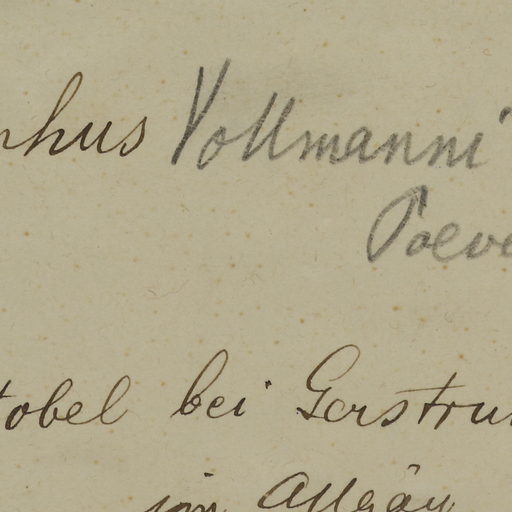 nhus Vollmanni
Poeve
tobel bei Gerstru
im Allgäu